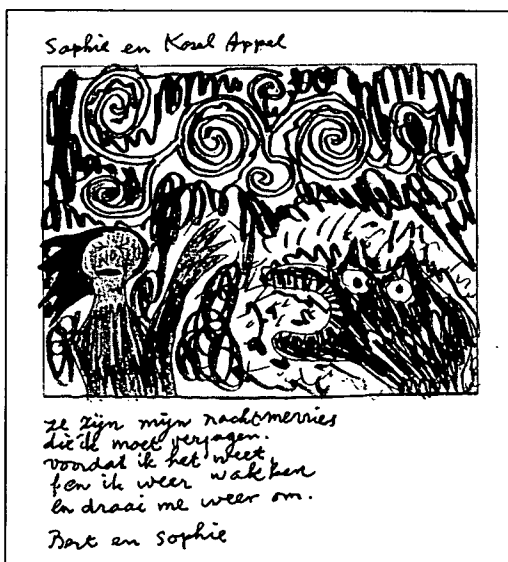 Sophie en Karel Appel
ze zijn mijn nachtmerries
die ik moet verjagen.
voordat ik het weet,
ben ik weer wakker
en draai me weer om.
Bert en Sophie